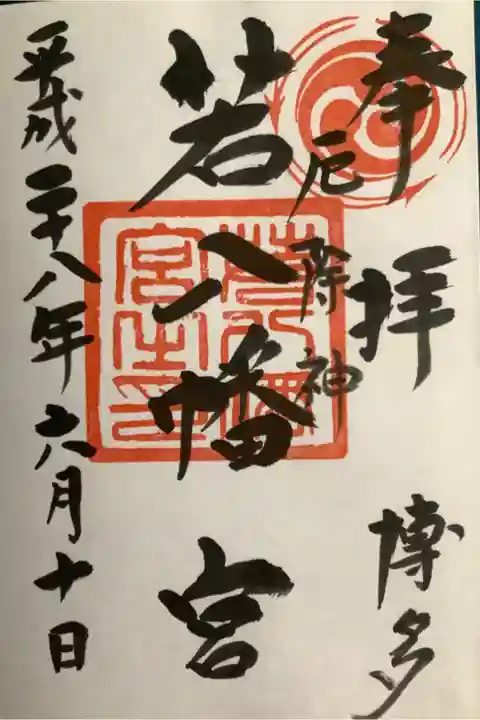 奉拝 博多
厄除神
若八幡宮
若八幡宮之印
平成二十八年六月十日